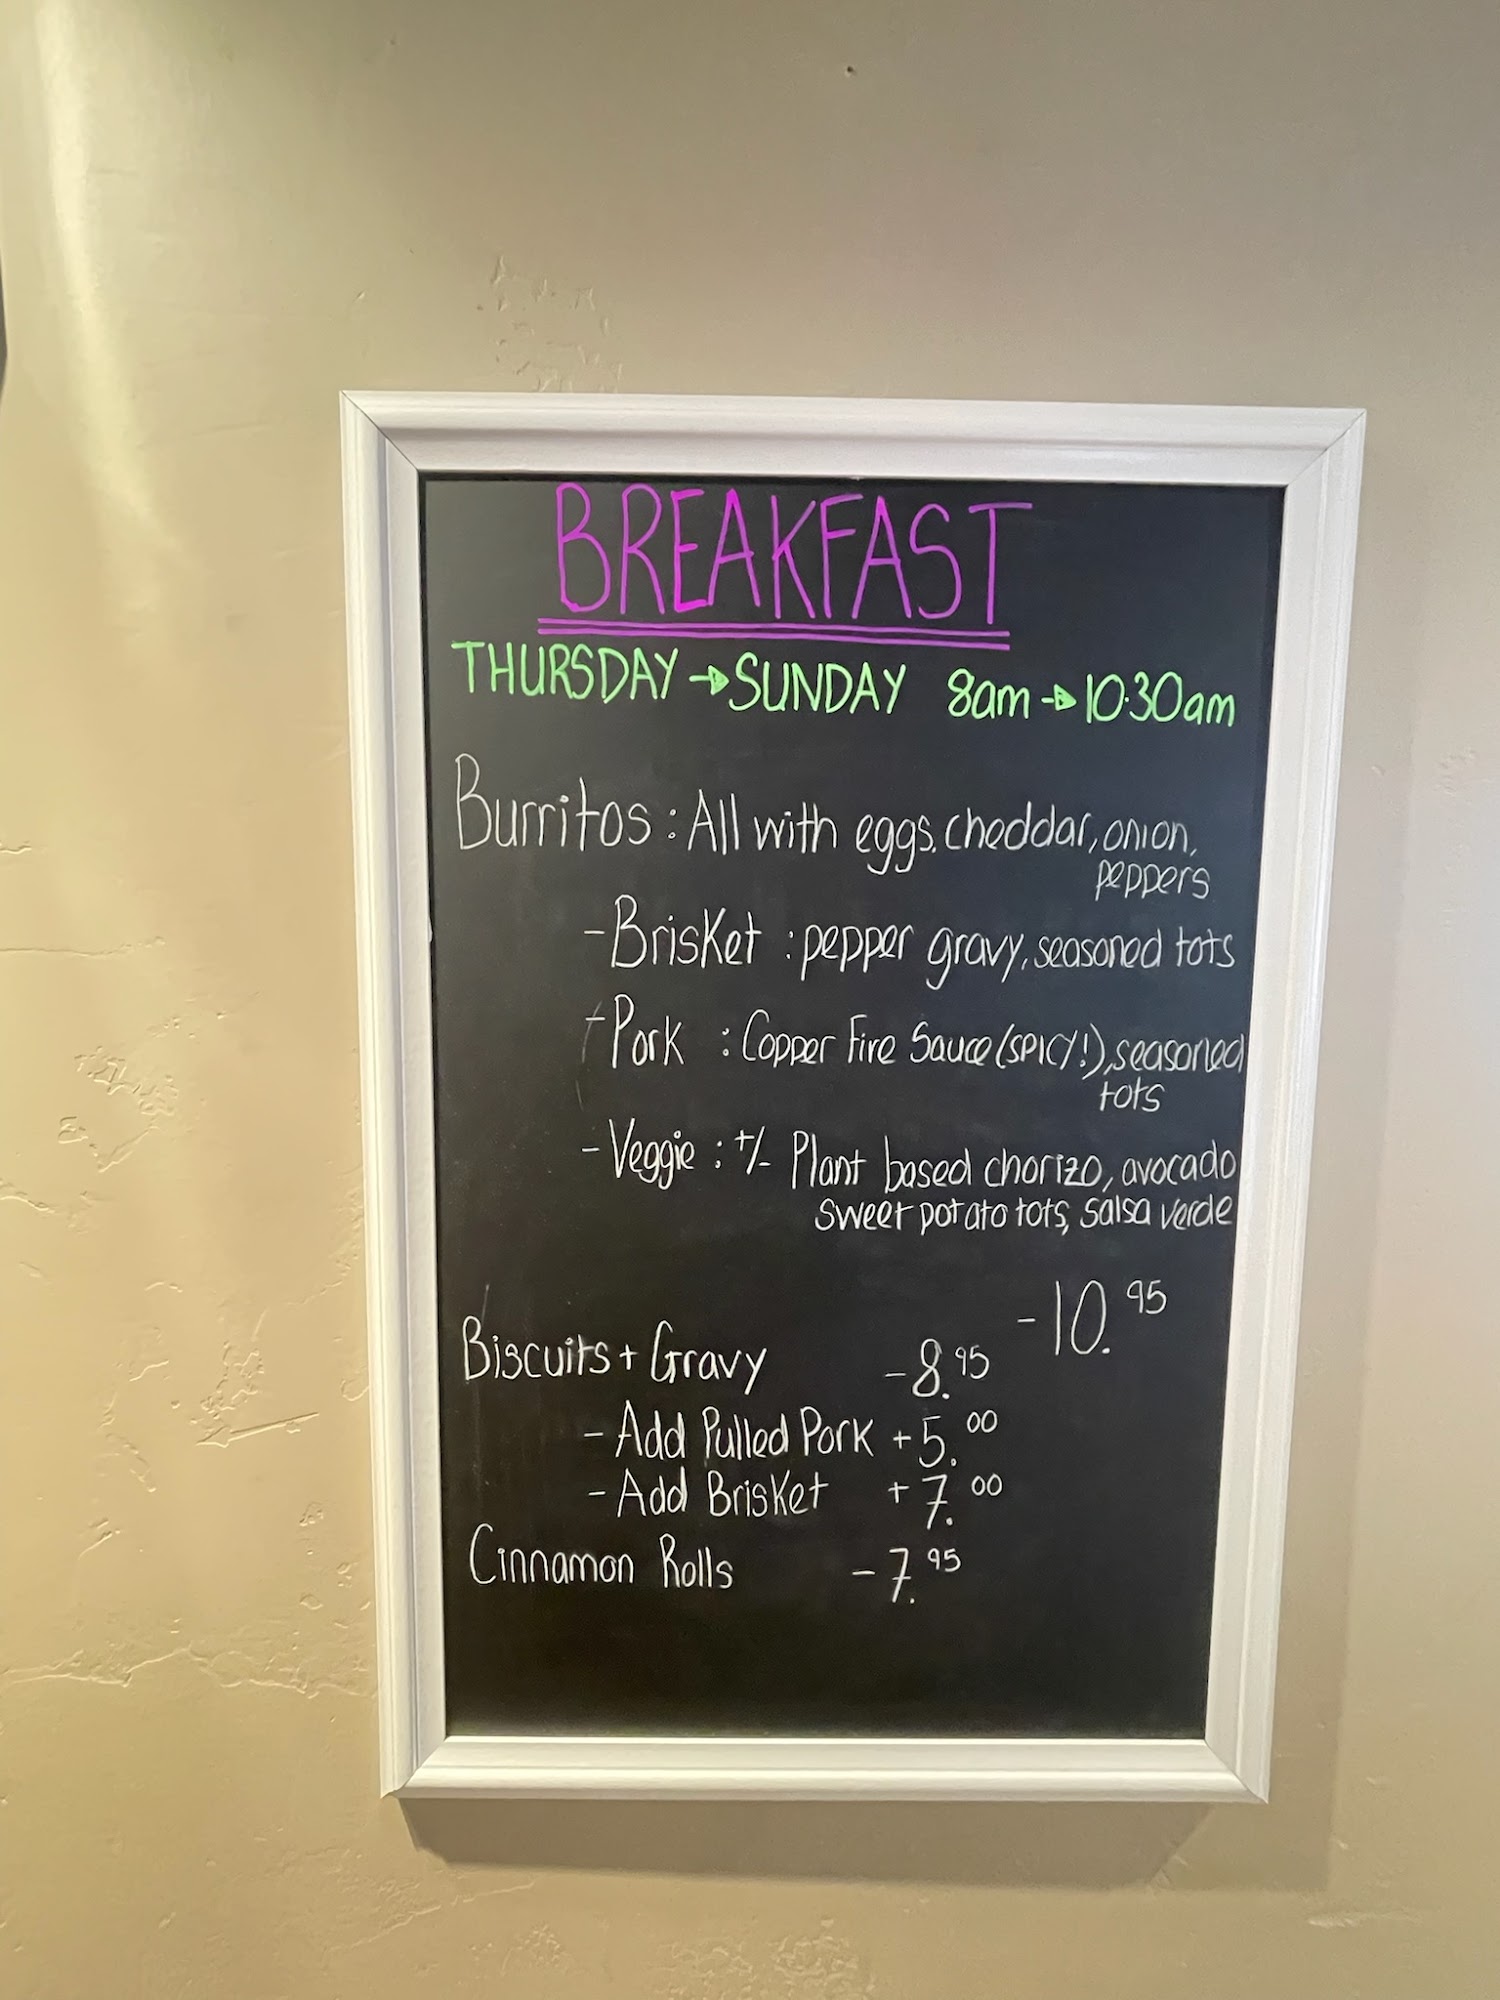 BREAKFAST
THURSDAY → SUNDAY 8am → 10:30am
Burritos : All with eggs, cheddar, onion,
peppers
- Brisket : pepper gravy, seasoned tots
- Pork : Copper Fire Sauce (SPICY!), seasoned
tots
- Veggie : +/- Plant based chorizo, avocado
sweet potato tots, salsa verde
- 10.95
Biscuits + Gravy - 8.95
- Add Pulled Pork + 5.00
- Add Brisket + 7.00
Cinnamon Rolls - 7.95